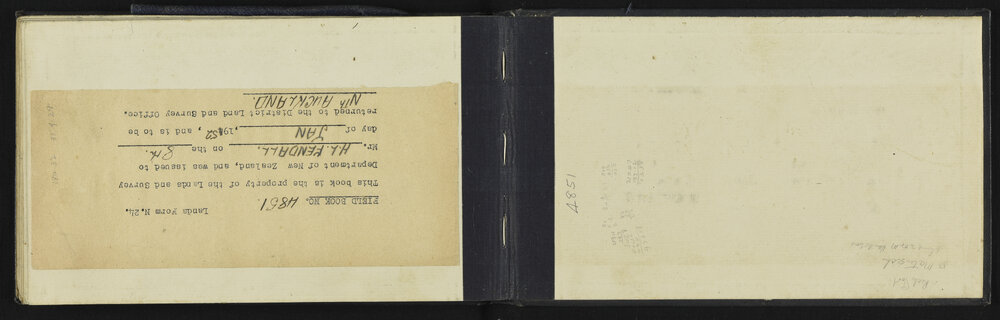 Lands Form N.24.
FIELD BOOK NO. 4851.
This book is the property of the Lands and Survey
Department of New Zealand, and was issued to
Mr. H.L. KENDALL. on the 8th.
day of JAN 1952, and is to be
returned to the District Land and Survey Office.
Nth AUCKLAND.
4851